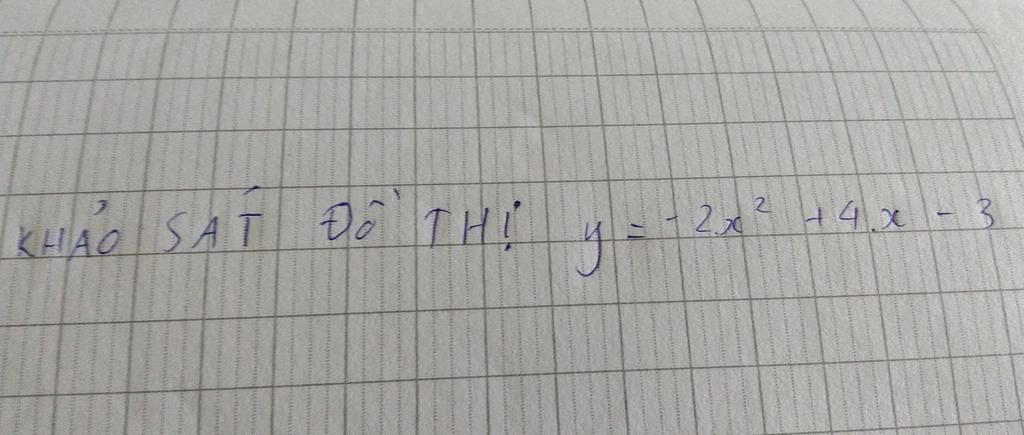 KHẢO SÁT ĐỒ THỊ y = -2x² + 4x - 3